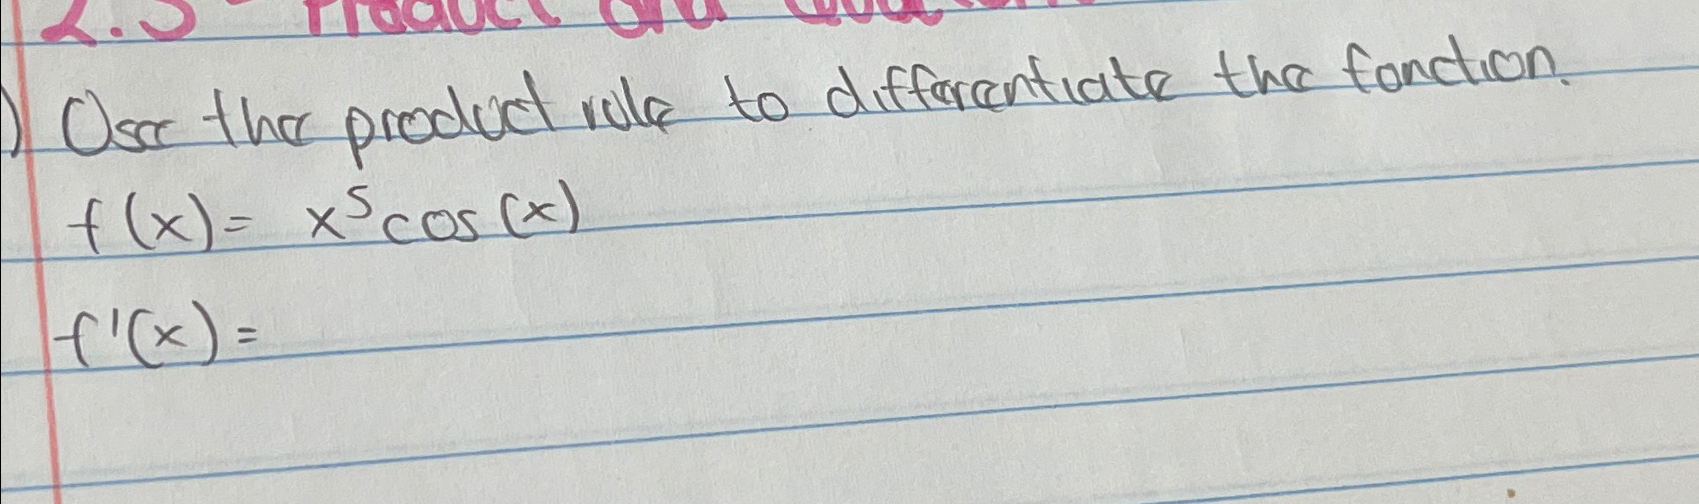 2.3 - Product and
) Use the product rule to differentiate the function.
f(x) = x⁵cos(x)
f'(x) =